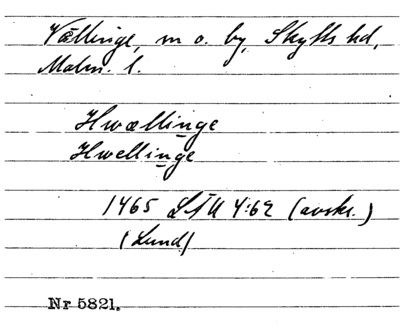 Vällinge, m o. by, Skytts hd,
Malm. l.
Hwællinge
Hwellinge
1465 LÄU 4:62 (avskr.)
(Lund)
Nr 5821.